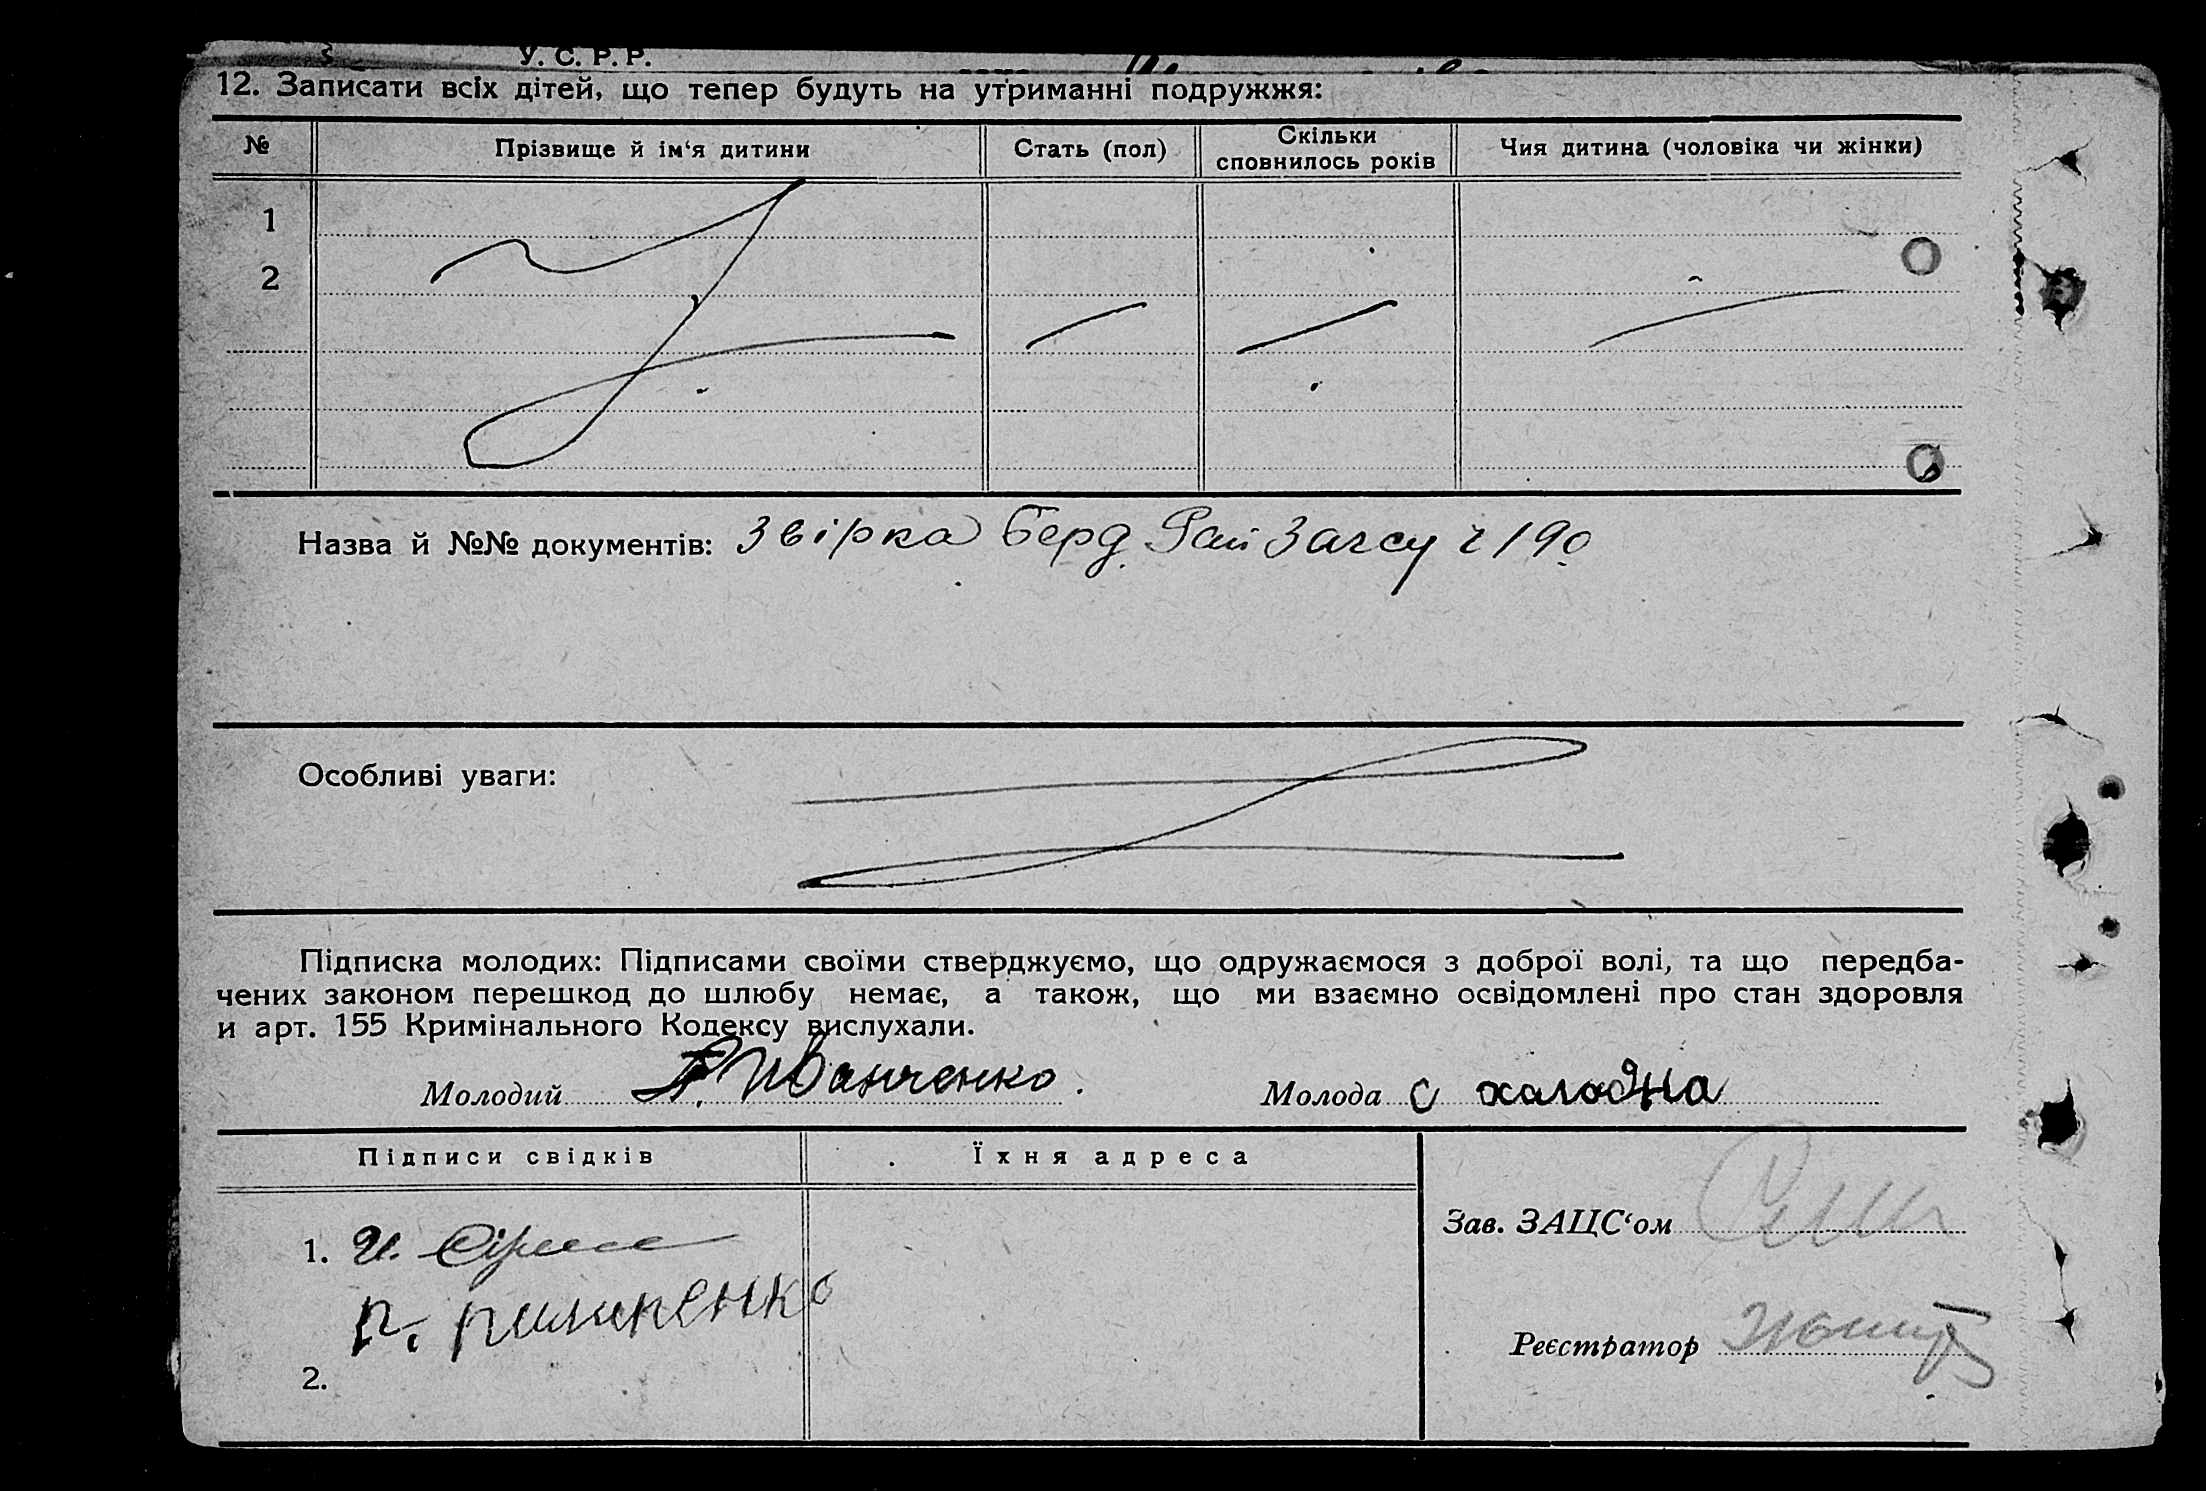 У. С. Р. Р.
12. Записати всіх дітей, що тепер будуть на утриманні подружжя:
№ Прізвище й ім‘я дитини Стать (пол) Скільки сповнилось років Чия дитина (чоловіка чи жінки)
1
2
Назва й №№ документів: Звірка Берд. Рай Загсу ч 190
Особливі уваги:
Підписка молодих: Підписами своїми стверджуємо, що одружаємося з доброї волі, та що передба-
чених законом перешкод до шлюбу немає, а також, що ми взаємно освідомлені про стан здоровля
и арт. 155 Кримінального Кодексу вислухали.
Молодий Иванченко Молода С холодна
Підписи свідків Їхня адреса
Зав. ЗАЦС‘ом
1.
Реєстратор
2.